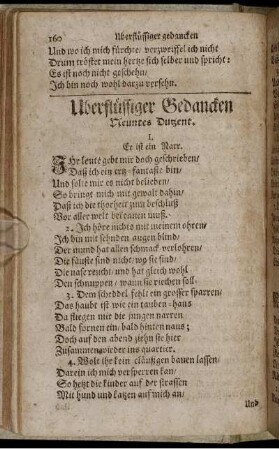 160 Uberflüssiger gedancken
Und wo ich mich fürchte/ verzweiffel ich nicht
Drum tröstet mein hertze sich selber und spricht:
Es ist noch nicht geschehn/
Ich bin noch wohl darzu versehn.
Uberflüssiger Gedancken
Neuntes Dutzent.
I.
Er ist ein Narr.
IHr leute gebt mir doch geschrieben/
Daß ich ein ertz-fantaste bin/
Und solte mir es nicht belieben/
So bringt mich mit gewalt dahin/
Daß ich die thorheit zum beschluß
Vor aller welt bekennen muß.
2. Ich höre nichts mit meinem ohren/
Ich bin mit sehnden augen blind/
Der mund hat allen schmack verlohren/
Die fäuste sind nicht/ wo sie sind/
Die nase reucht/ und hat gleich wohl
Den schnuppen/ wann sie riechen soll.
3. Dem scheddel fehlt ein grosser sparren/
Das haubt ist wie ein tauben-haus
Da fliegen mir die jungen narren
Bald fornen ein/ bald hinten naus;
Doch auf den abend ziehn sie hier
Zusammen wieder ins quartier.
4. Wolt ihr kein cläußgen bauen lassen/
Darein ich mich versperren kan/
So hetzt die kinder auf der strassen
Mit hund und katzen auf mich an/
Und